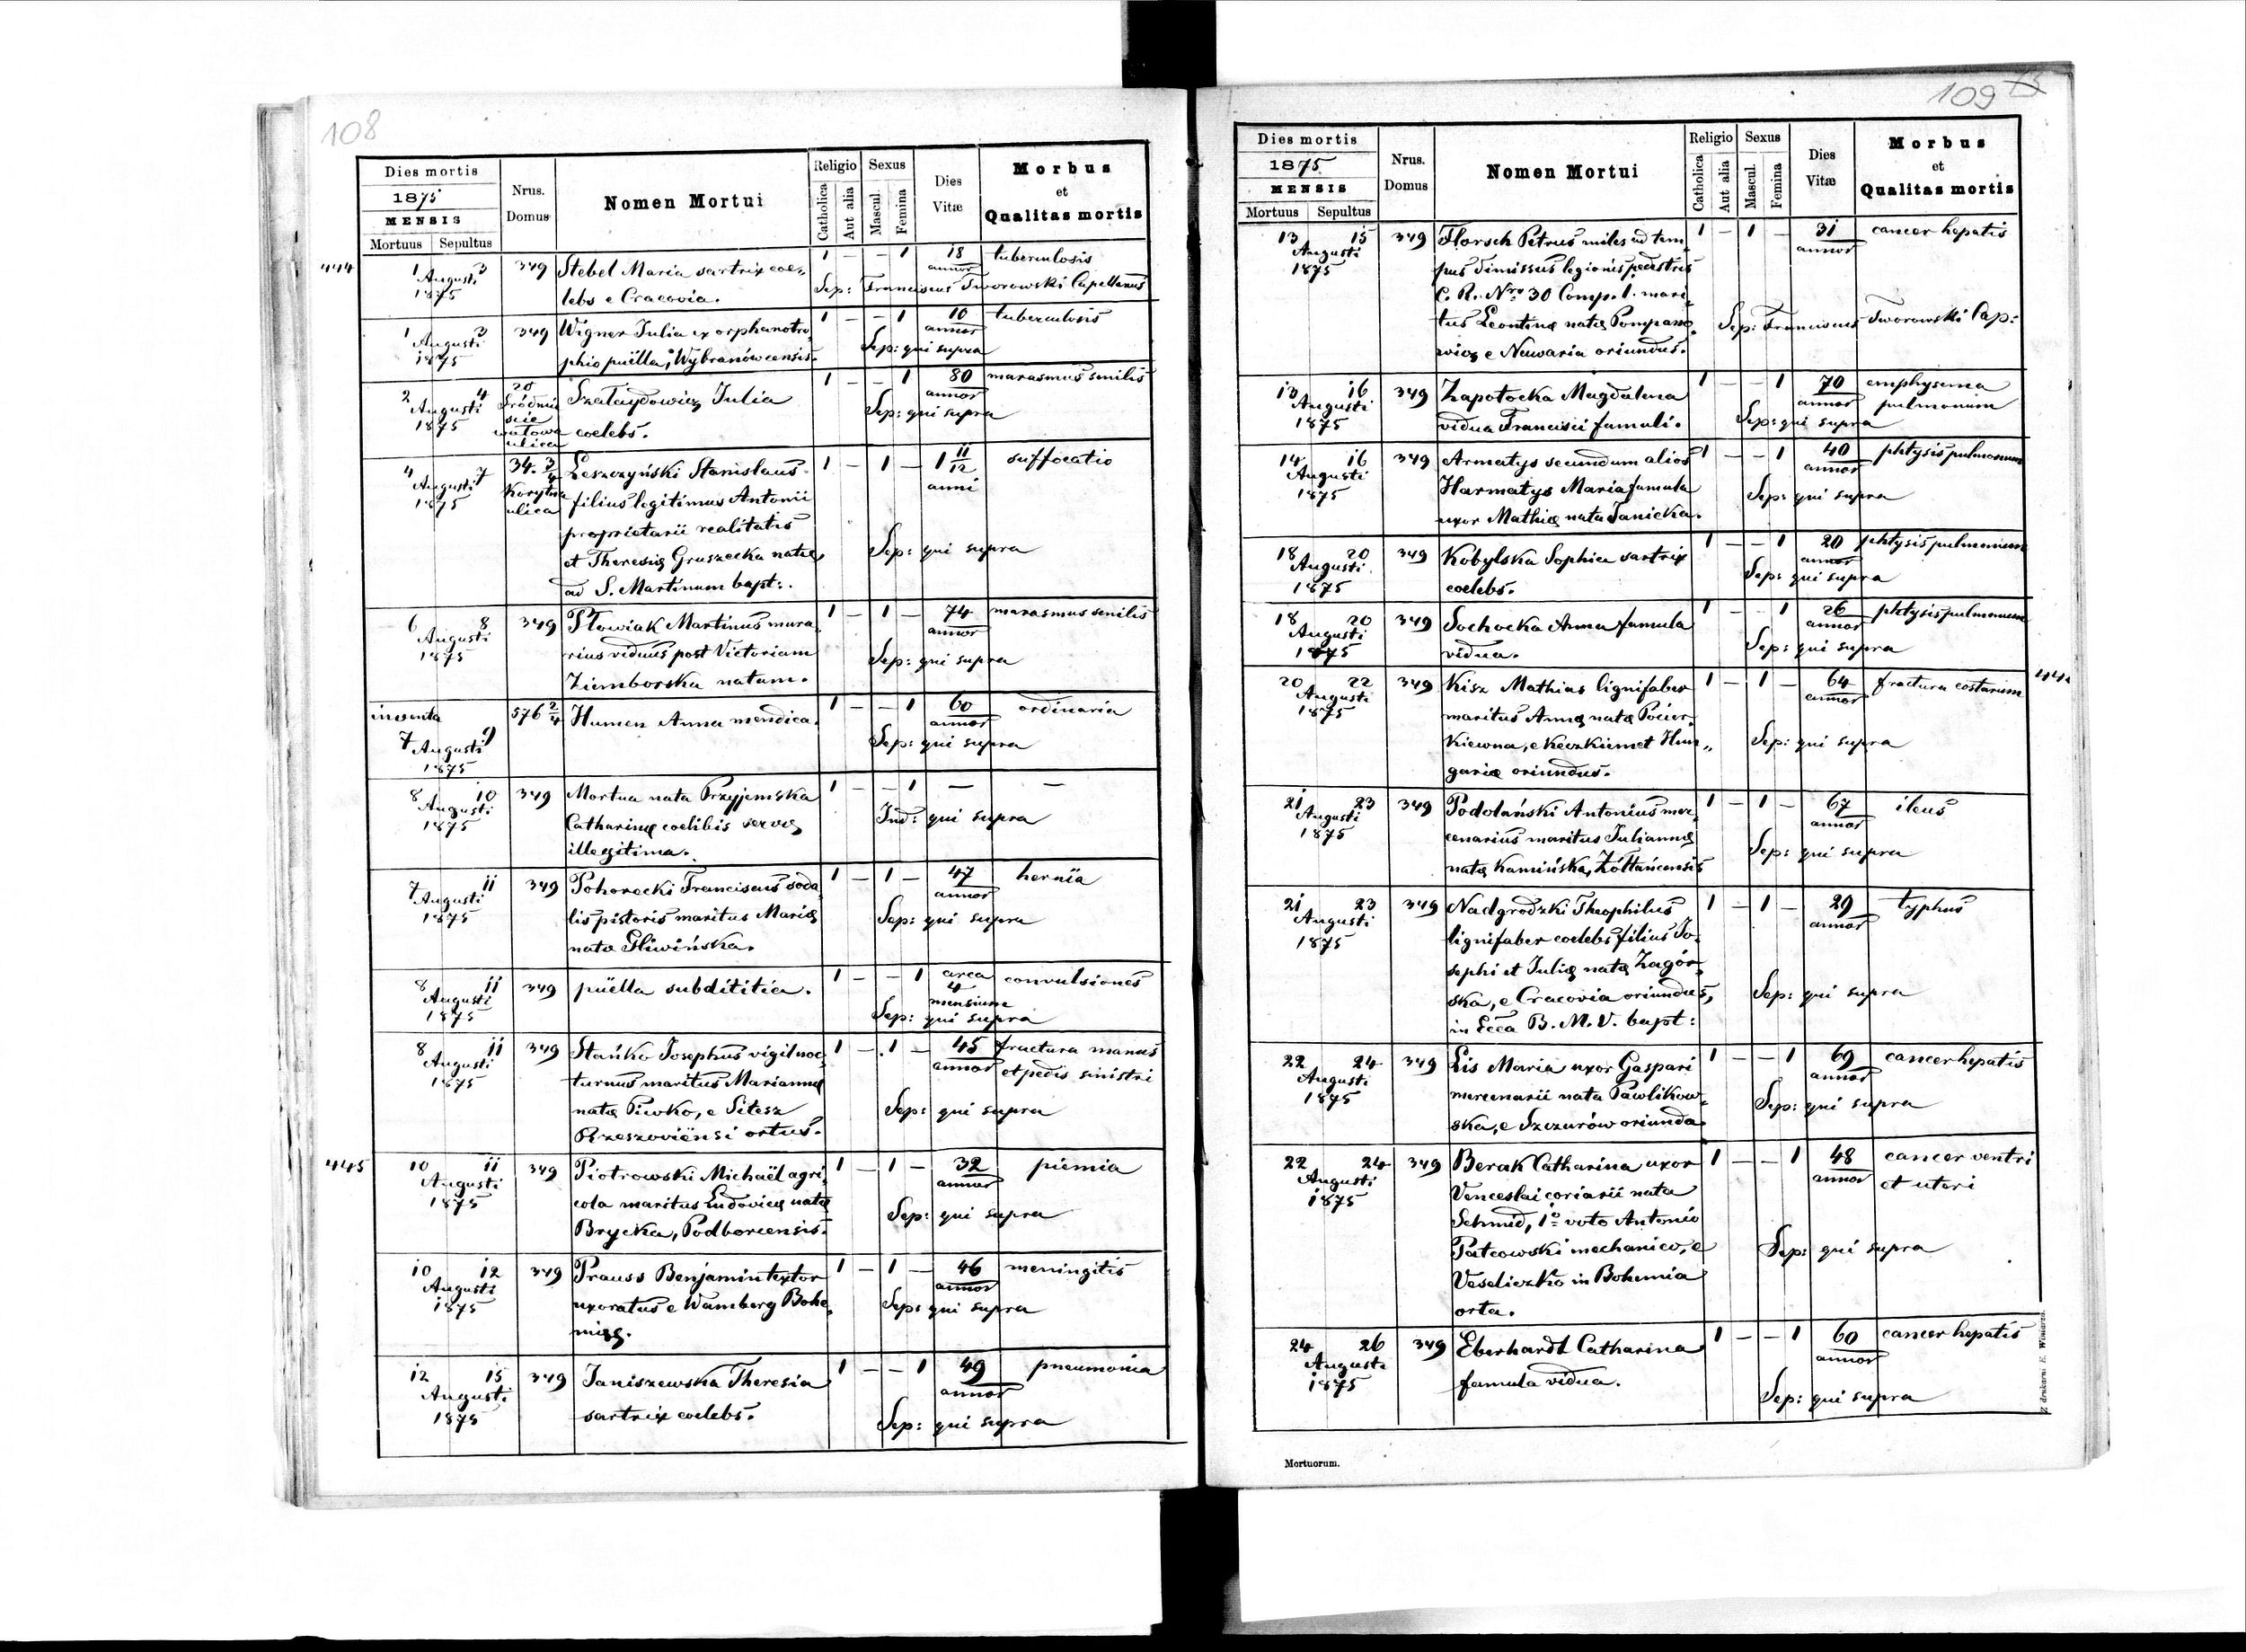 108
Dies mortis
1875
MENSIS
Mortuus Sepultus
Nrus. Domus
Nomen Mortui
Religio
Catholica Aut alia
Sexus
Mascul. Femina
Dies Vitæ
Morbus et Qualitas mortis
444
1 3 349 Stebel Maria sartrix coe- 1 — — 1 18 tuberculosis
Augusti lebs e Cracovia. annor
1875 Sep: Franciscus Tworowski Capellanus
1 3 349 Wigner Julia ex orphanotro- 1 — — 1 10 tuberculosis
Augusti phio puëlla, Wybranówcensis. annor
1875 Sep: qui supra
2 4 20 Szałaydowicz Julia 1 — — 1 80 marasmus senilis
Augusti coelebs. annor
1875 ulica Sep: qui supra
4 7 34 3/4 Leszczyński Stanislaus 1 — 1 — 1 11/12 suffocatio
Augusti Korytna filius legitimus Antonii anni
1875 ulica proprietarii realitatis
et Theresiæ Gruszecka natæ Sep: qui supra
ad S. Martinum bapt:.
6 8 349 Płowiak Martinus mura- 1 — 1 — 74 marasmus senilis
Augusti rius viduus post Victoriam annor
1875 Ziemborska natam. Sep: qui supra
inventa 576 2/4 Humen Anna mendica. 1 — — 1 60 ordinaria
7 9 annor
Augusti Sep: qui supra
1875
8 10 349 Mortua nata Przyjemska 1 — — 1 — —
Augusti Catharinæ coelibis servæ Ind: qui supra
1875 illegitima.
7 11 349 Pohorecki Franciscus soda- 1 — 1 — 47 hernïa
Augusti lis pistoris maritus Mariæ annor
1875 natæ Gliwińska. Sep: qui supra
8 11 349 püella subdititia. 1 — — 1 circa 4 mensium convulsiones
Augusti
1875 Sep: qui supra
8 11 349 Stańko Josephus vigil noc- 1 — 1 — 45 fractura manus
Augusti turnus maritus Mariannæ annor et pedis sinistri
1875 natæ Piwko, e Sitesz Sep: qui supra
Rzeszoviënsi ortus.
445
10 11 349 Piotrowski Michaël agri- 1 — 1 — 32 piemia
Augusti cola maritus Ludovicæ natæ annor
1875 Brycka, Podborcensis. Sep: qui supra
10 12 349 Prauss Benjamin textor 1 — 1 — 46 meningitis
Augusti uxoratus e Wamberg Bohe- annor
1875 miæ. Sep: qui supra
12 15 349 Janiszewska Theresia 1 — — 1 49 pneumonia
Augusti sartrix coelebs. annor
1875 Sep: qui supra
109
Dies mortis
1875
MENSIS
Mortuus Sepultus
Nrus. Domus
Nomen Mortui
Religio
Catholica Aut alia
Sexus
Mascul. Femina
Dies Vitæ
Morbus et Qualitas mortis
13 15 349 Florsch Petrus miles ad tem- 1 — 1 — 31 cancer hepatis
Augusti pus dimissus legionis pedestris annor
1875 C. R. Nro 30 Comp. 1. mari-
tus Leontinæ natæ Pompano- Sep: Franciscus Tworowski Cap:
wicz e Nawaria oriundus.
13 16 349 Zapotocka Magdalena 1 — — 1 70 emphysema
Augusti vidua Francisci famuli. annor pulmonum
1875 Sep: qui supra
14 16 349 Armatys secundum alios 1 — — 1 40 phtysis pulmonum
Augusti Harmatys Maria famula annor
1875 uxor Mathiæ nata Janicka. Sep: qui supra
18 20 349 Kobylska Sophia sartrix 1 — — 1 20 phtysis pulmonum
Augusti coelebs. annor
1875 Sep: qui supra
18 20 349 Sochocka Anna famula 1 — — 1 26 phtysis pulmonum
Augusti vidua. annor
1875 Sep: qui supra
20 22 349 Kisz Mathias lignifaber 1 — 1 — 64 fractura costarum
Augusti maritus Annæ natæ Pocier- annor
1875 kiewna, e Keczkiemet Hun- Sep: qui supra
gariæ oriundus.
21 23 349 Podolański Antonius mer- 1 — 1 — 67 ileus
Augusti cenarius maritus Juliannæ annor
1875 natæ Kamińska, Żółtańcensis Sep: qui supra
21 23 349 Nadgrodzki Theophilus 1 — 1 — 29 typhus
Augusti lignifaber coelebs filius Jo- annor
1875 sephi et Juliæ natæ Zagór-
ska, e Cracovia oriundus, Sep: qui supra
in Ecca B. M. V. bapt:
22 24 349 Lis Maria uxor Gaspari 1 — — 1 69 cancer hepatis
Augusti mercenarii nata Pawlikow- annor
1875 ska, e Szczurów oriunda. Sep: qui supra
22 24 349 Berak Catharina uxor 1 — — 1 48 cancer ventri
Augusti Venceslai coriarii nata annor et uteri
1875 Schmid, 1o voto Antonio
Patcowski mechanico, e Sep: qui supra
Veseliczko in Bohemia
orta.
24 26 349 Eberhardt Catharina 1 — — 1 60 cancer hepatis
Augusti famula vidua. annor
1875 Sep: qui supra
Z drukarni E. Winiarza.
Mortuorum.